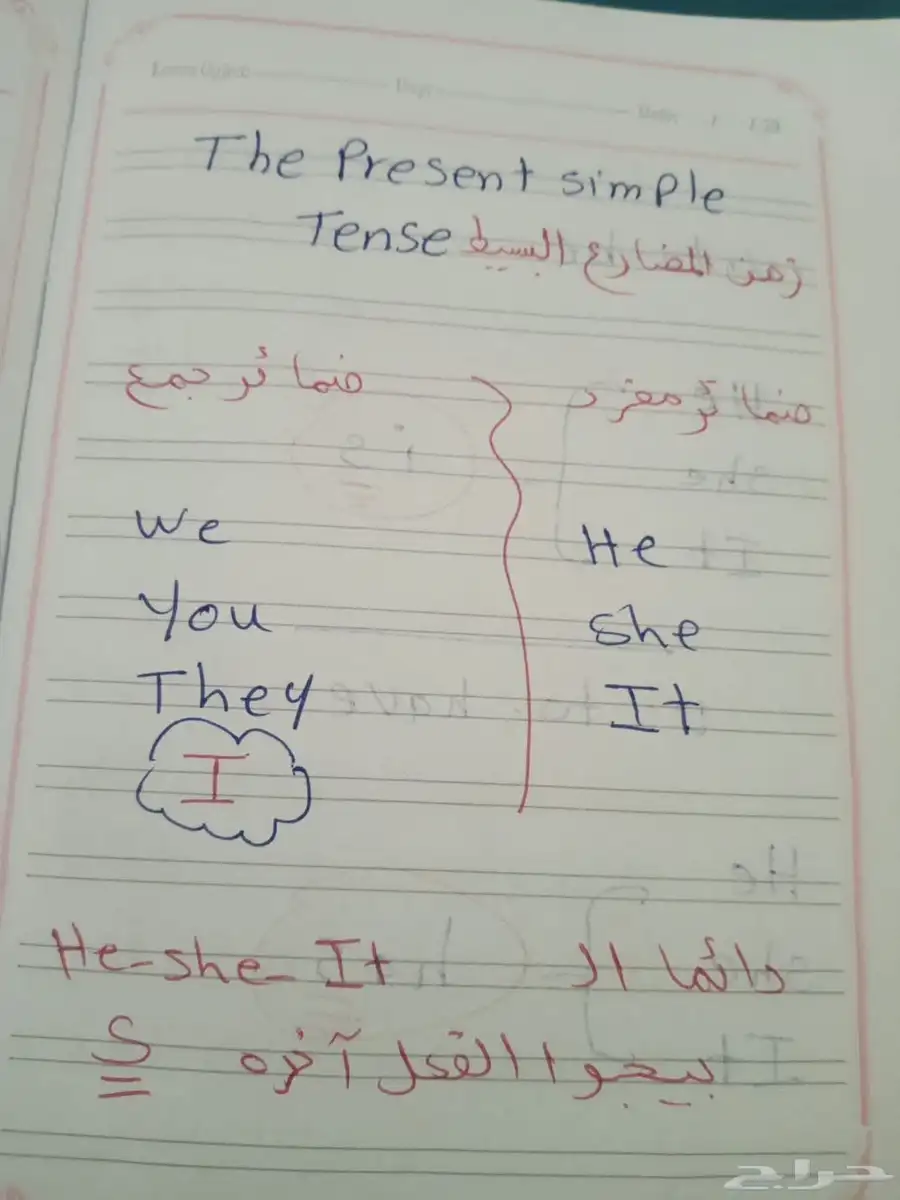 The Present simple
Tense زمن المضارع البسيط
ضمائر مفرد
ضمائر جمع
He
she
It
We
You
They
I
دائما ال He-she-It
بيجوا الفعل آخره S
حراج